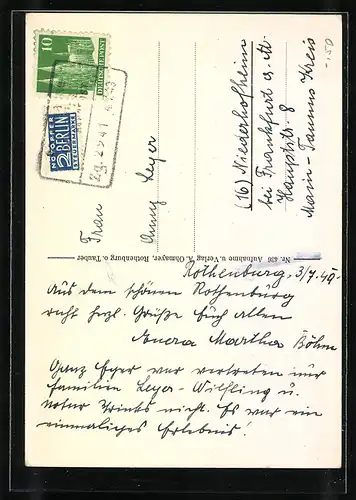 10
DEUTSCHE POST
NOTOPFER
2 BERLIN
STEUERMARKE
Zg. 2541
Frau
Anny Leyer
(16) Niederhofheim
bei Frankfurt a. M.
Hauptstr. 8
Main-Taunus Kreis
-.50
Nr. 436 Aufnahme u. Verlag A. Ohmayer, Rothenburg o. Tauber
Rothenburg, 3/7.49.
Aus dem schönen Rothenburg
recht herzl. Grüße Euch allen
Martha Böhm
Ganz Eger war vertreten nur
Familien Leyer - Wilfling u.
nicht. Es war ein
einmaliges Erlebnis!